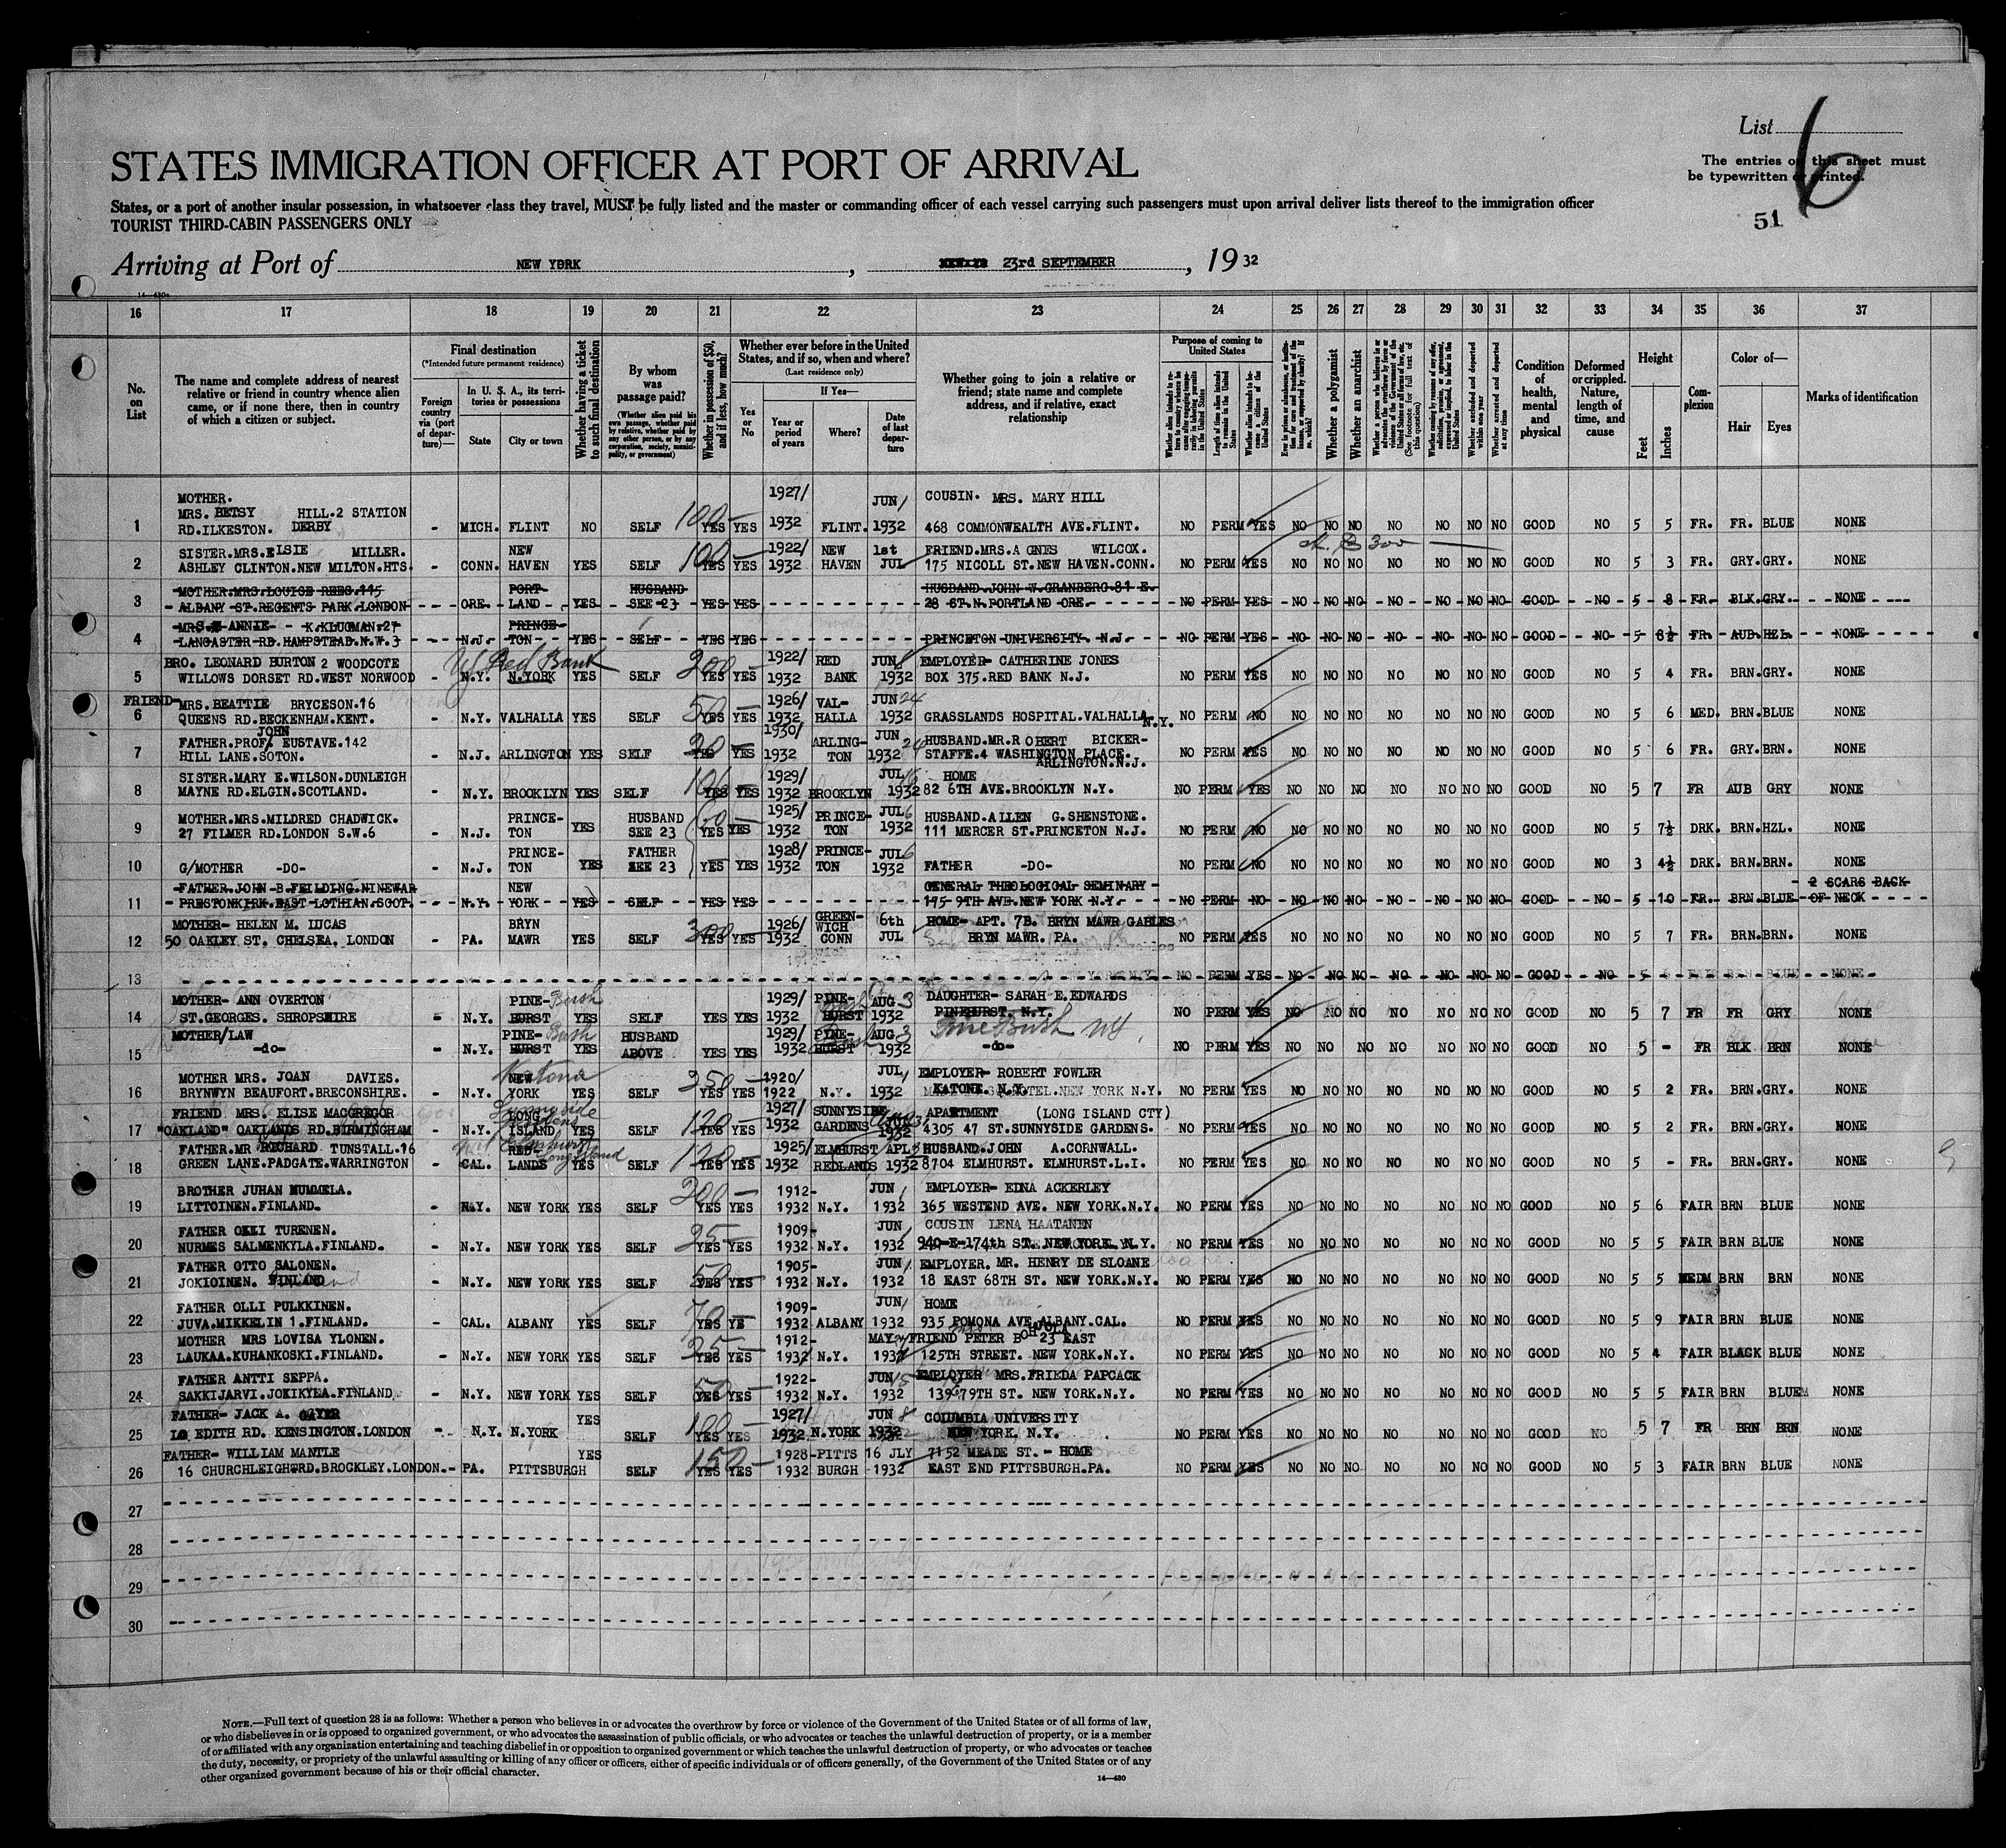 List 6
The entries on this sheet must
be typewritten or printed.
51
STATES IMMIGRATION OFFICER AT PORT OF ARRIVAL
States, or a port of another insular possession, in whatsoever class they travel, MUST be fully listed and the master or commanding officer of each vessel carrying such passengers must upon arrival deliver lists thereof to the immigration officer
TOURIST THIRD-CABIN PASSENGERS ONLY
Arriving at Port of NEW YORK, 23rd SEPTEMBER, 19 32
16 17 18 19 20 21 22 23 24 25 26 27 28 29 30 31 32 33 34 35 36 37
No. on List
The name and complete address of nearest relative or friend in country whence alien came, or if none there, then in country of which a citizen or subject.
Final destination
(*Intended future permanent residence)
Foreign country via (port of departure)—
In U. S. A., its territories or possessions
State
City or town
Whether having a ticket to such final destination
By whom was passage paid?
(Whether alien paid his own passage, whether paid by relative, whether paid by any other person, or by any corporation, society, municipality, or government)
Whether in possession of $50, and if less, how much?
Whether ever before in the United States, and if so, when and where?
(Last residence only)
Yes or No
If Yes—
Year or period of years
Where?
Date of last departure
Whether going to join a relative or friend; state name and complete address, and if relative, exact relationship
Purpose of coming to United States
Length of time alien intends to remain in the United States
Whether alien intends to become a citizen of the United States
Whether a polygamist
Whether an anarchist
Whether excluded and deported within one year
Whether arrested and deported at any time
Condition of health, mental and physical
Deformed or crippled. Nature, length of time, and cause
Height
Feet
Inches
Complexion
Color of—
Hair
Eyes
Marks of identification
MOTHER. 1927/ JUN 1 COUSIN. MRS. MARY HILL
MRS. BETSY HILL.2 STATION 100—
1 RD.ILKESTON. DERBY - MICH. FLINT NO SELF YES YES 1932 FLINT. 1932 468 COMMONWEALTH AVE.FLINT. NO PERM YES NO NO NO NO NO NO NO GOOD NO 5 5 FR. FR. BLUE NONE
SISTER.MRS.ELSIE MILLER. NEW 100— 1922/ NEW 1st FRIEND.MRS.AGNES WILCOX.
2 ASHLEY CLINTON.NEW MILTON.HTS- - CONN. HAVEN YES SELF YES YES 1932 HAVEN JUL 175 NICOLL ST.NEW HAVEN.CONN. NO PERM YES NO NO NO NO NO NO NO GOOD NO 5 3 FR. GRY. GRY. NONE
MOTHER.MRS.LOUISE REES.115 PORT- HUSBAND HUSBAND.JOHN W.GRANBERG 81 E.
3 ALBANY ST.REGENTS PARK.LONDON ORE. LAND YES SEE 23 YES YES 28 ST.N.PORTLAND ORE. NO PERM YES NO NO NO NO NO NO NO GOOD NO 5 8 FR. BLK. GRY. NONE
MRS. ANNIE K.KLUGMAN.27 PRINCE-
4 LANCASTER RD.HAMPSTEAD.N.W.3 N.J. TON YES SELF YES YES PRINCETON UNIVERSITY. N.J. NO PERM YES NO NO NO NO NO NO NO GOOD NO 5 3½ FR. AUB. HZL. NONE
BRO. LEONARD BURTON 2 WOODCOTE NJ Red Bank 200— 1922/ RED JUN EMPLOYER- CATHERINE JONES
5 WILLOWS DORSET RD.WEST NORWOOD - N.Y. N.YORK YES SELF YES YES 1932 BANK 1932 BOX 375.RED BANK N.J. NO PERM YES NO NO NO NO NO NO NO GOOD NO 5 4 FR. BRN. GRY. NONE
FRIEND-MRS.BEATTIE BRYCESON.16 50— 1926/ VAL- JUN 24
6 QUEENS RD.BECKENHAM.KENT. - N.Y. VALHALLA YES SELF YES YES 1932 HALLA 1932 GRASSLANDS HOSPITAL.VALHALLA N.Y. NO PERM NO NO NO NO NO NO NO NO GOOD NO 5 6 MED. BRN. BLUE NONE
JOHN
FATHER.PROF. EUSTAVE.142 20— 1930/ ARLING- JUN 24 HUSBAND.MR.ROBERT BICKER-
7 HILL LANE.SOTON. - N.J. ARLINGTON YES SELF YES YES 1932 TON 1932 STAFFE.4 WASHINGTON PLACE. ARLINGTON.N.J. NO PERM YES NO NO NO NO NO NO NO GOOD NO 5 6 FR. GRY. BRN. NONE
SISTER.MARY E.WILSON.DUNLEIGH 100— 1929/ JUL 16 HOME
8 MAYNE RD.ELGIN.SCOTLAND. - N.Y. BROOKLYN YES SELF YES YES 1932 BROOKLYN 1932 82 6TH AVE.BROOKLYN N.Y. NO PERM YES NO NO NO NO NO NO NO GOOD NO 5 7 FR AUB GRY NONE
MOTHER.MRS.MILDRED CHADWICK. PRINCE- HUSBAND 60— 1925/ PRINCE- JUL 6 HUSBAND.ALLEN G.SHENSTONE.
9 27 FILMER RD.LONDON S.W.6 - N.J. TON YES SEE 23 YES YES 1932 TON 1932 111 MERCER ST.PRINCETON N.J. NO PERM NO NO NO NO NO NO NO NO GOOD NO 5 7½ DRK. BRN. HZL. NONE
PRINCE- FATHER 1928/ PRINCE- JUL 6
10 G/MOTHER -DO- - N.J. TON YES SEE 23 YES YES 1932 TON 1932 FATHER -DO- NO PERM NO NO NO NO NO NO NO NO GOOD NO 3 4½ DRK. BRN. BRN. NONE
FATHER.JOHN B.FEILDING.NINEWAR NEW GENERAL THEOLOGICAL SEMINARY 2 SCARS BACK
11 PRESTONKIRK.EAST LOTHIAN.SCOT. N.Y. YORK YES SELF YES YES 175 9TH AVE.NEW YORK N.Y. NO PERM NO NO NO NO NO NO NO NO GOOD NO 5 10 FR. BRN. BLUE OF NECK
MOTHER- HELEN M. LUCAS BRYN 300— 1926/ GREENWICH 6th HOME- APT. 7B. BRYN MAWR GABLES
12 50 OAKLEY ST. CHELSEA. LONDON - PA. MAWR YES SELF YES YES 1932 CONN JUL BRYN MAWR. PA. NO PERM YES NO NO NO NO NO NO NO GOOD NO 5 7 FR. BRN. BRN. NONE
13 NO PERM YES NO NO NO NO NO NO NO GOOD NO NONE
MOTHER- ANN OVERTON PINE-Bush 1929/ PINE- AUG 3 DAUGHTER- SARAH E.EDWARDS
14 ST.GEORGES. SHROPSHIRE - N.Y. HURST YES SELF YES YES 1932 HURST 1932 PINEHURST. N.Y. NO PERM YES NO NO NO NO NO NO NO GOOD NO 5 7 FR FR GRY NONE
MOTHER/LAW PINE-Bush HUSBAND 1929/ PINE- AUG 3 Pine Bush NY.
15 -do- - N.Y. HURST YES ABOVE YES YES 1932 HURST 1932 -do- NO PERM YES NO NO NO NO NO NO NO GOOD NO 5 - FR BLK BRN NONE
MOTHER MRS. JOAN DAVIES. NEW Katona 250— 1920/ JUL 1 EMPLOYER- ROBERT FOWLER
16 BRYNWYN BEAUFORT.BRECONSHIRE. - N.Y. YORK YES SELF YES YES 1922 N.Y. 1932 KATONE. N.Y. NO PERM YES NO NO NO NO NO NO NO GOOD NO 5 2 FR. BRN. GRY. NONE
FRIEND MRS. ELISE MACGREGOR LONG Sunnyside 120— 1927/ SUNNYSIDE APARTMENT (LONG ISLAND CTY)
17 "OAKLAND" OAKLANDS RD.BIRMINGHAM - N.Y. ISLAND YES SELF YES YES 1932 GARDENS 1932 4305 47 ST.SUNNYSIDE GARDENS. NO PERM YES NO NO NO NO NO NO NO GOOD NO 5 2 FR. BRN. GRY. NONE
FATHER.MR RICHARD TUNSTALL.16 RED- Elmhurst Long Island 120— 1925/ ELMHURST APL HUSBAND.JOHN A.CORNWALL.
18 GREEN LANE.PADGATE.WARRINGTON - CAL. LANDS YES SELF YES YES 1932 REDLANDS 1932 8704 ELMHURST. ELMHURST.L.I. NO PERM YES NO NO NO NO NO NO NO GOOD NO 5 - FR. BRN. GRY. NONE
BROTHER JUHAN NUMMELA. 200— 1912- JUN 1 EMPLOYER- EDNA ACKERLEY
19 LITTOINEN.FINLAND. - N.Y. NEW YORK YES SELF YES YES 1932 N.Y. 1932 365 WESTEND AVE. NEW YORK.N.Y. NO PERM YES NO NO NO NO NO NO NO GOOD NO 5 6 FAIR BRN BLUE NONE
FATHER OLLI TURENEN. 25— 1909- JUN 1 COUSIN LENA HAATANEN
20 NURMES SALMENKYLA.FINLAND. - N.Y. NEW YORK YES SELF YES YES 1932 N.Y. 1932 940-E-174th ST. NEW YORK. N.Y. NO PERM YES NO NO NO NO NO NO NO GOOD NO 5 5 FAIR BRN BLUE NONE
FATHER OTTO SALONEN. 50— 1905- JUN 1 EMPLOYER. MR. HENRY DE SLOANE
21 JOKIOINEN. FINLAND - N.Y. NEW YORK YES SELF YES YES 1932 N.Y. 1932 18 EAST 68TH ST. NEW YORK.N.Y. NO PERM YES NO NO NO NO NO NO NO GOOD NO 5 5 MEDM BRN BRN NONE
FATHER OLLI PULKKINEN. 70— 1909- JUN 1 HOME
22 JUVA.MIKKELIN 1.FINLAND. - CAL. ALBANY YES SELF YES YE 1932 ALBANY 1932 935 POMONA AVE.ALBANY.CAL. NO PERM YES NO NO NO NO NO NO NO GOOD NO 5 9 FAIR BRN BLUE NONE
MOTHER MRS LOVISA YLONEN. 25— 1912- MAY FRIEND PETER 23 EAST
23 LAUKAA.KUHANKOSKI.FINLAND. - N.Y. NEW YORK YES SELF YES YES 1932 N.Y. 1932 125TH STREET. NEW YORK.N.Y. NO PERM YES NO NO NO NO NO NO NO GOOD NO 5 4 FAIR BLACK BLUE NONE
FATHER ANTTI SEPPA. 50— 1922- JUN 15 EMPLOYER MRS.FRIEDA PAPCACK
24 SAKKIJARVI.JOKIKYLA.FINLAND - N.Y. NEW YORK YES SELF YES YES 1932 N.Y. 1932 139 79TH ST. NEW YORK.N.Y. NO PERM YES NO NO NO NO NO NO NO GOOD NO 5 5 FAIR BRN BLUE NONE
FATHER- JACK A. YES 100— 1927/ JUN 8 COLUMBIA UNIVERSITY
25 EDITH RD. KENSINGTON.LONDON - N.Y. N.YORK SELF YES YES 1932 N.YORK 1932 NEW YORK. N.Y. NO PERM YES NO NO NO NO NO NO NO GOOD NO 5 7 FR BRN BRN NONE
FATHER- WILLIAM MANTLE YES 150— 1928- PITTS 16 JLY 7152 MEADE ST. - HOME
26 16 CHURCHLEIGH RD.BROCKLEY.LONDON.- PA. PITTSBURGH SELF YES YES 1932 BURGH 1932 EAST END PITTSBURGH.PA. NO PERM YES NO NO NO NO NO NO NO GOOD NO 5 3 FAIR BRN BLUE NONE
27
28
29
30
NOTE.—Full text of question 28 is as follows: Whether a person who believes in or advocates the overthrow by force or violence of the Government of the United States or of all forms of law,
or who disbelieves in or is opposed to organized government, or who advocates the assassination of public officials, or who advocates or teaches the unlawful destruction of property, or is a member
of or affiliated with any organization entertaining and teaching disbelief in or opposition to organized government or which teaches the unlawful destruction of property, or who advocates or teaches
the duty, necessity, or propriety of the unlawful assaulting or killing of any officer or officers, either of specific individuals or of officers generally, of the Government of the United States or of any
other organized government because of his or their official character.
14—430